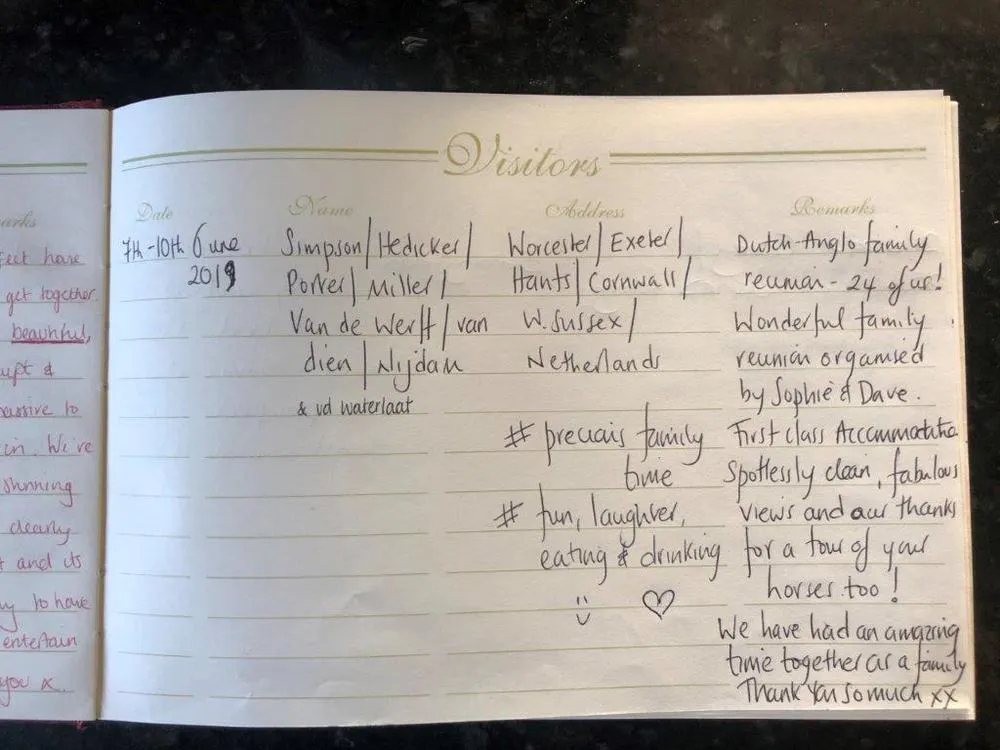 Visitors
arks
Date Name Address Remarks
7th-10th June Simpson/Hedicker/ Worcester/Exeter/ Dutch-Anglo family
2019 Porter/Miller/ Hants/Cornwall/ reunion - 24 of us!
Van de Werff/van W.Sussex/ Wonderful family
dien/Nijdam Netherlands reunion organised
& vd waterlaat by Sophie & Dave.
# precious family First class Accommodation
time Spotlessly clean, fabulous
# fun, laughter, views and our thanks
eating & drinking for a tour of your
horses too!
We have had an amazing
time together as a family
Thank you so much xx
get together
beautiful,
&
to
in. We've
stunning
clearly
and its
to have
entertain
you x.